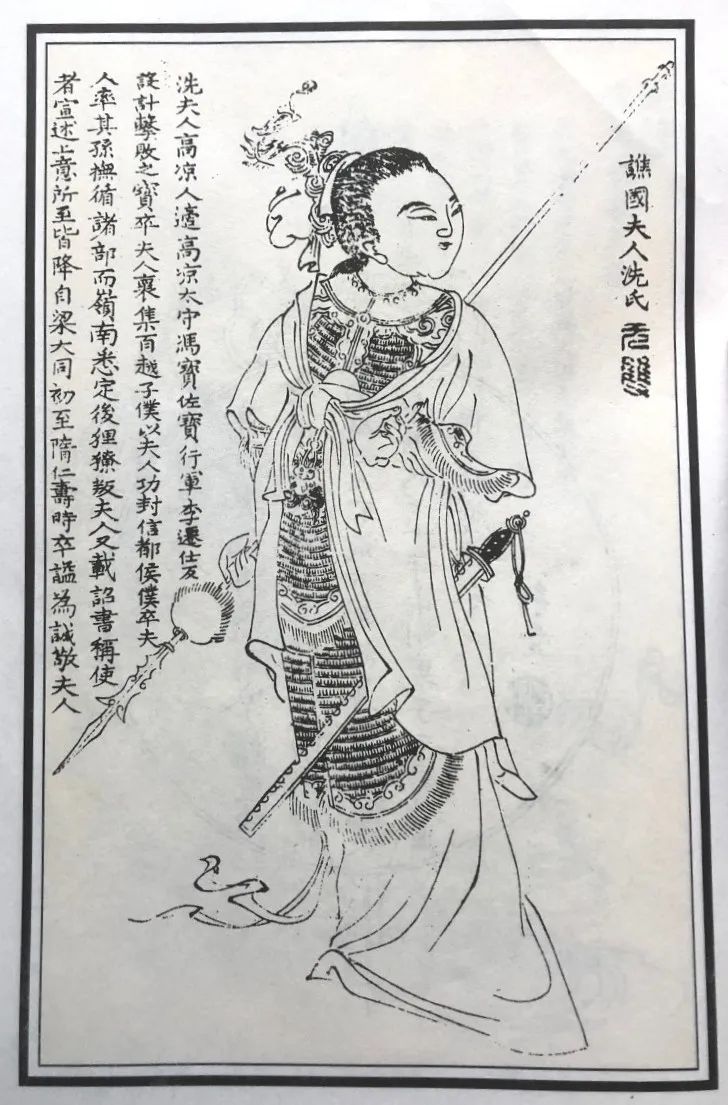 譙國夫人洗氏 無雙
洗夫人高凉人適高凉太守馮寶佐寶行軍李遷仕反
設計擊敗之寶卒夫人褱集百越子僕以夫人功封信都侯僕卒夫
人率其孫撫循諸部而嶺南悉定後狸獠叛夫人又載詔書稱使
者宣述上意所至皆降自梁大同初至隋仁壽時卒謚為誠敬夫人